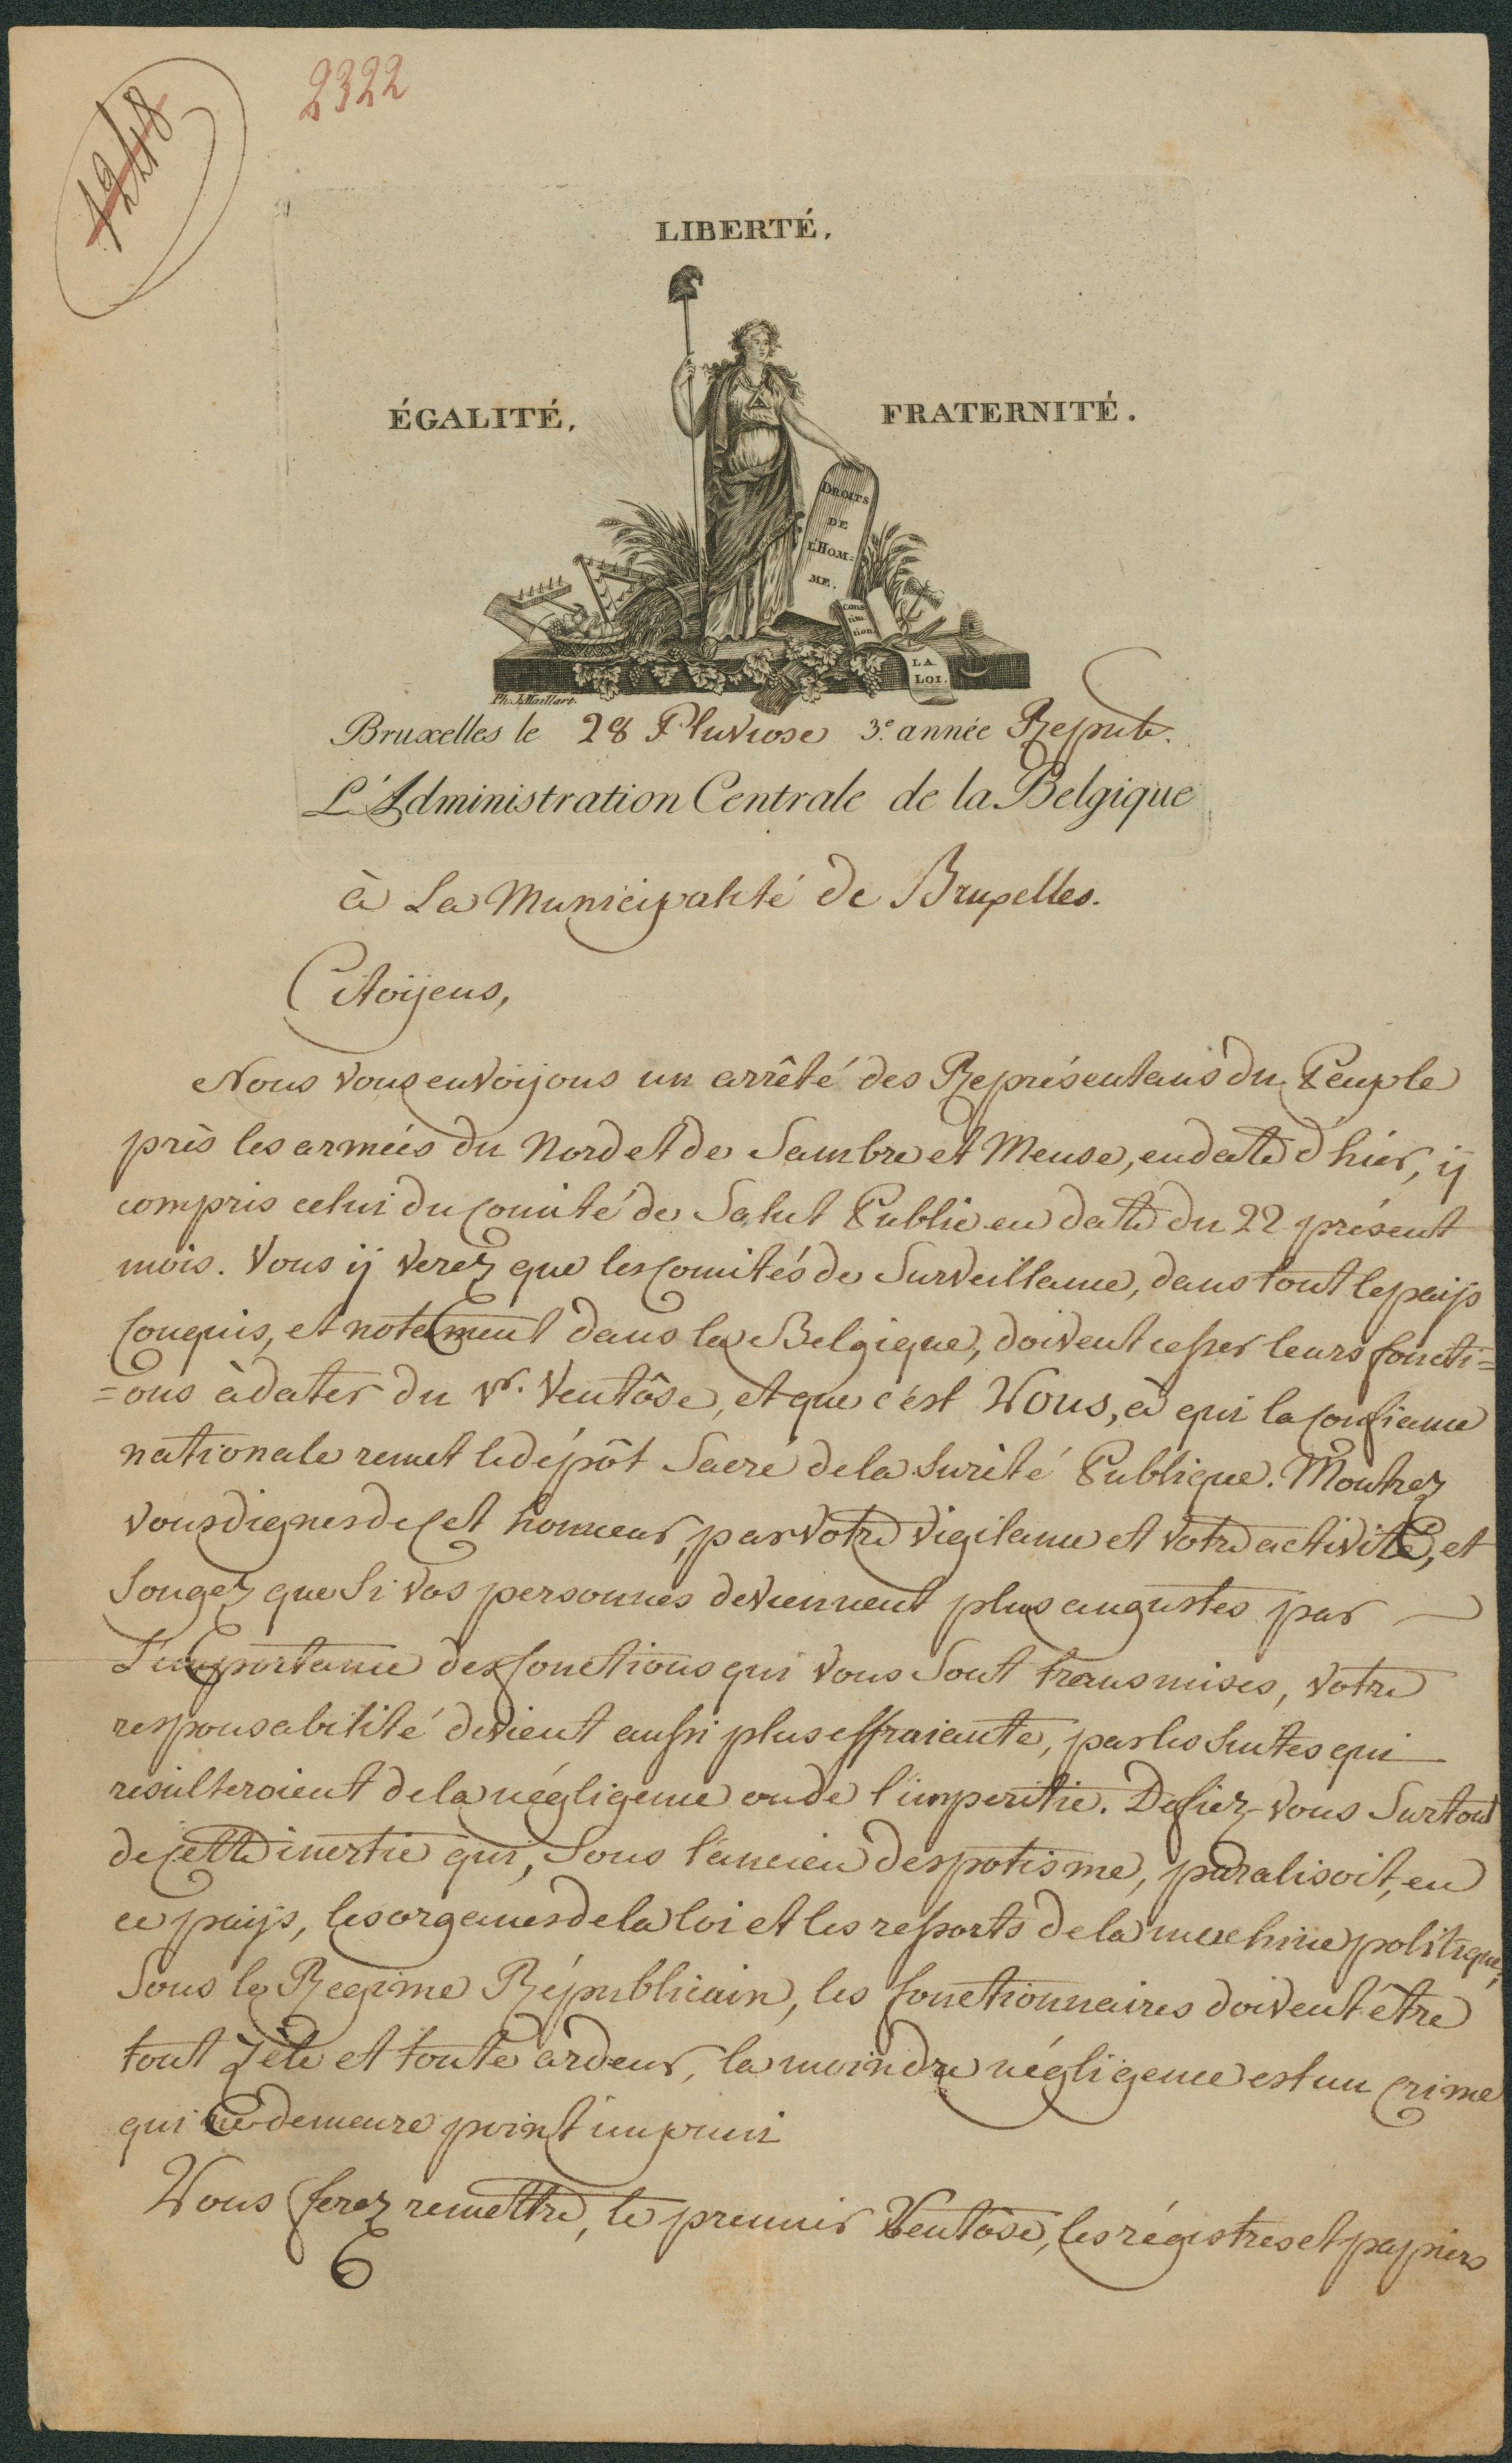 1248
2322
LIBERTÉ,
ÉGALITÉ,
FRATERNITÉ.
DROITS
DE
L'HOM=
ME.
Cons
titu
tion
LA
LOI.
Ph. J. Maillart.
Bruxelles le 28 Pluviose 3e. année Repub.
L'Administration Centrale de la Belgique
à La Municipalité de Bruxelles.
Citoÿens,
Nous vous envoÿons un arrêté des Représentans du Peuple
près les armées du Nord et de Sambre et Meuse, en date d'hier, ÿ
compris celui du Comité de Salut Public en date du 22 présent
mois. Vous ÿ verez que les Comités de Surveillance, dans tout le païs
Conquis, et notament dans la Belgique, doivent cesser leurs foncti=
=ons à dater du 1r. Ventôse, et que c'est Vous, à qui la Confiance
nationale remet le dépôt Sacré de la Sureté Publique. Montrez
vous dignes de Cet honneur, par votre vigilance et votre activité, et
Songez que Si vos personnes deviennent plus augustes par
L'importance des fonctions qui vous Sont transmises, votre
responsabilité devient aussi plus effraiante, par les Suites qui
résulteroient de la négligence ou de l'imperitie. Defiez-vous Surtout
de Cette inertie qui, Sous l'ancien despotisme, paralisoit, en
ce païs, les organes de la loi et les ressorts de la machine politique,
Sous le Regime Républicain, les fonctionnaires doivent être
tout zèle et toute ardeur, la moindre négligence est un Crime
qui ne demeure point impuni
Vous ferez remettre, le premier Ventôse, les régistres et papiers